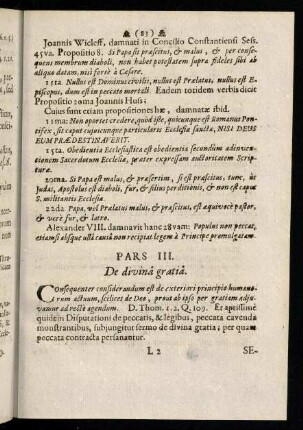 ( 83 )
Joannis Wicleff, damnati in Concilio Constantiensi Sess.
45va. Propositio 8. Si Papa sit præscitus, & malus, & per conse-
quens membrum diaboli, non habet potestatem supra fideles sibi ab
aliquo datam, nisi fortè à Cæsare.
15ta Nullus est Dominus civilis, nullus est Prælatus, nullus est E-
piscopus, dum est in peccato mortali. Eadem totidem verbis dicit
Propositio 20ma Joannis Huss;
Cujus sunt etiam propositiones hæ, damnatæ ibid.
11ma: Non oportet credere, quòd iste, quicunque est Romanus Pon-
tifex, sit caput cujuscunque particularis Ecclesiæ sanctæ, NISI DEUS
EUM PRÆDESTINAVERIT.
15ta. Obedientia Ecclesiastica est obedientia secundùm adinven-
tionem Sacerdotum Ecclesiæ, præter expressam authoritatem Scrip-
turæ.
20ma. Si Papa est malus, & præsertim, si est præscitus, tunc, ut
Judas, Apostolus est diaboli, fur, & filius perditionis, & non est caput
S. militantis Ecclesiæ
22da Papa, vel Prælatus malus, & præscitus, est æquivocè pastor,
& verè fur, & latro.
Alexander VIII. damnavit hanc 28vam: Populus non peccat,
etiamsi absque ulla causa non recipiat legem à Principe promulgatam.
PARS III.
De divinâ gratiâ.
Consequenter considerandum est de exteriori principio humano-
rum actuum, scilicet de Deo, prout ab ipso per gratiam adju-
vamur ad rectè agendum. D. Thom. 1. 2. Q. 109. Et aptissimè
quidem Disputationi de peccatis, & legibus, peccata cavenda
monstrantibus, subjungitur sermo de divina gratia; per quam
peccata contracta persanantur.
L 2
SE-